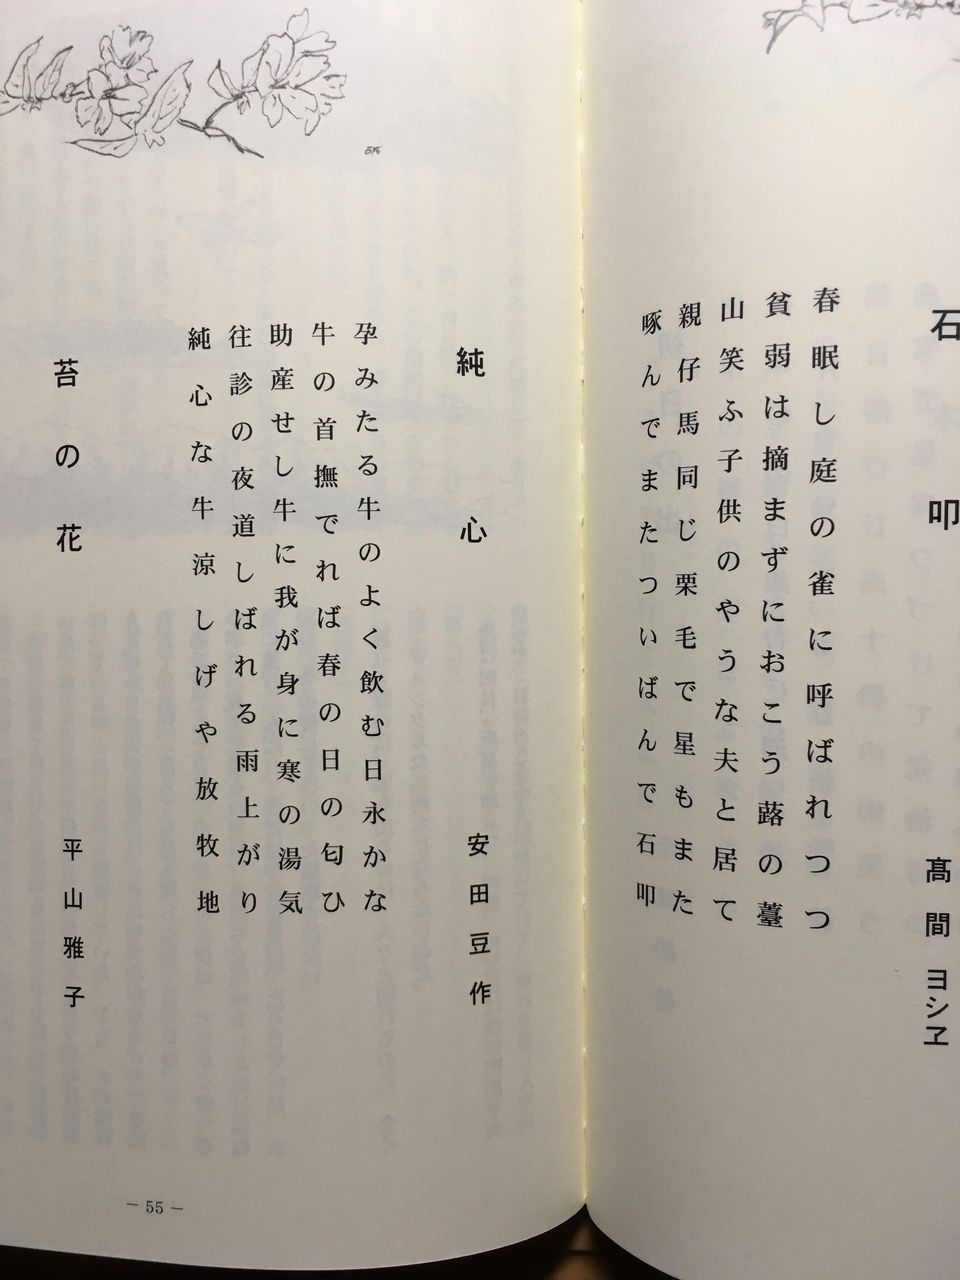 石叩
髙間ヨシヱ
春眠し庭の雀に呼ばれつつ
貧弱は摘まずにおこう蕗の薹
山笑ふ子供のやうな夫と居て
親仔馬同じ栗毛で星もまた
啄んでまたついばんで石叩
純心
安田豆作
孕みたる牛のよく飲む日永かな
牛の首撫でれば春の日の匂ひ
助産せし牛に我が身に寒の湯気
往診の夜道しばれる雨上がり
純心な牛涼しげや放牧地
苔の花
平山雅子
― 55 ―